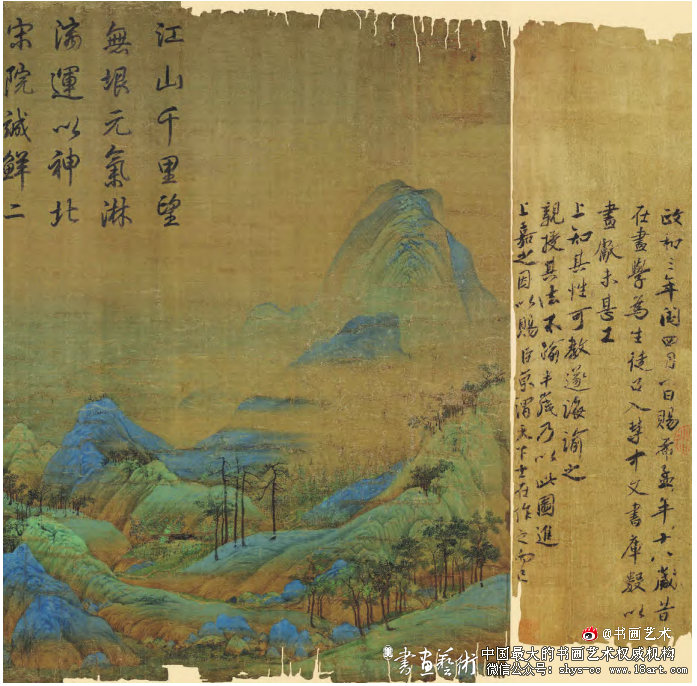 政和三年閏四月一日賜希孟年十八歲昔
在畫學為生徒召入禁中文書庫數以
畫獻未甚工
上知其性可教遂誨諭之
親授其法不踰半歲乃以此圖進
上嘉之因以賜臣京謂天下士在作之而已
江山千里望
無垠元氣淋
漓運以神北
宋院誠鮮二
@书画艺术
書畫藝術
中国最大的书画艺术权威机构
微信公众号: shys-cc www.18art.com